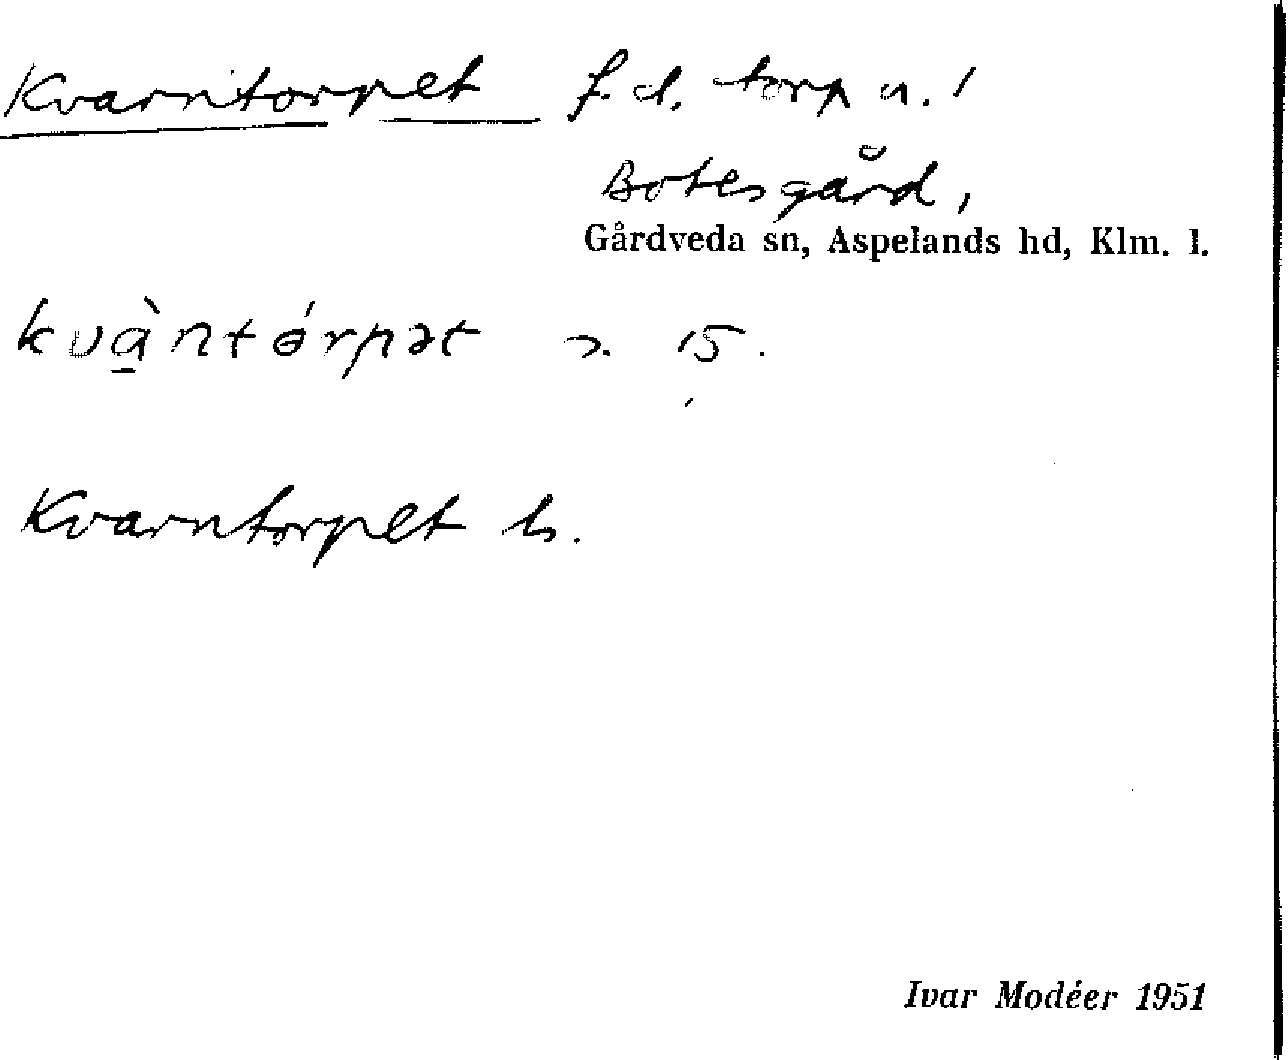 Kvarntorpet f.d. torp u. /
Botesgård,
Gårdveda sn, Aspelands hd, Klm. l.
kvàntórpət 15.
Kvarntorpet b.
Ivar Modéer 1951